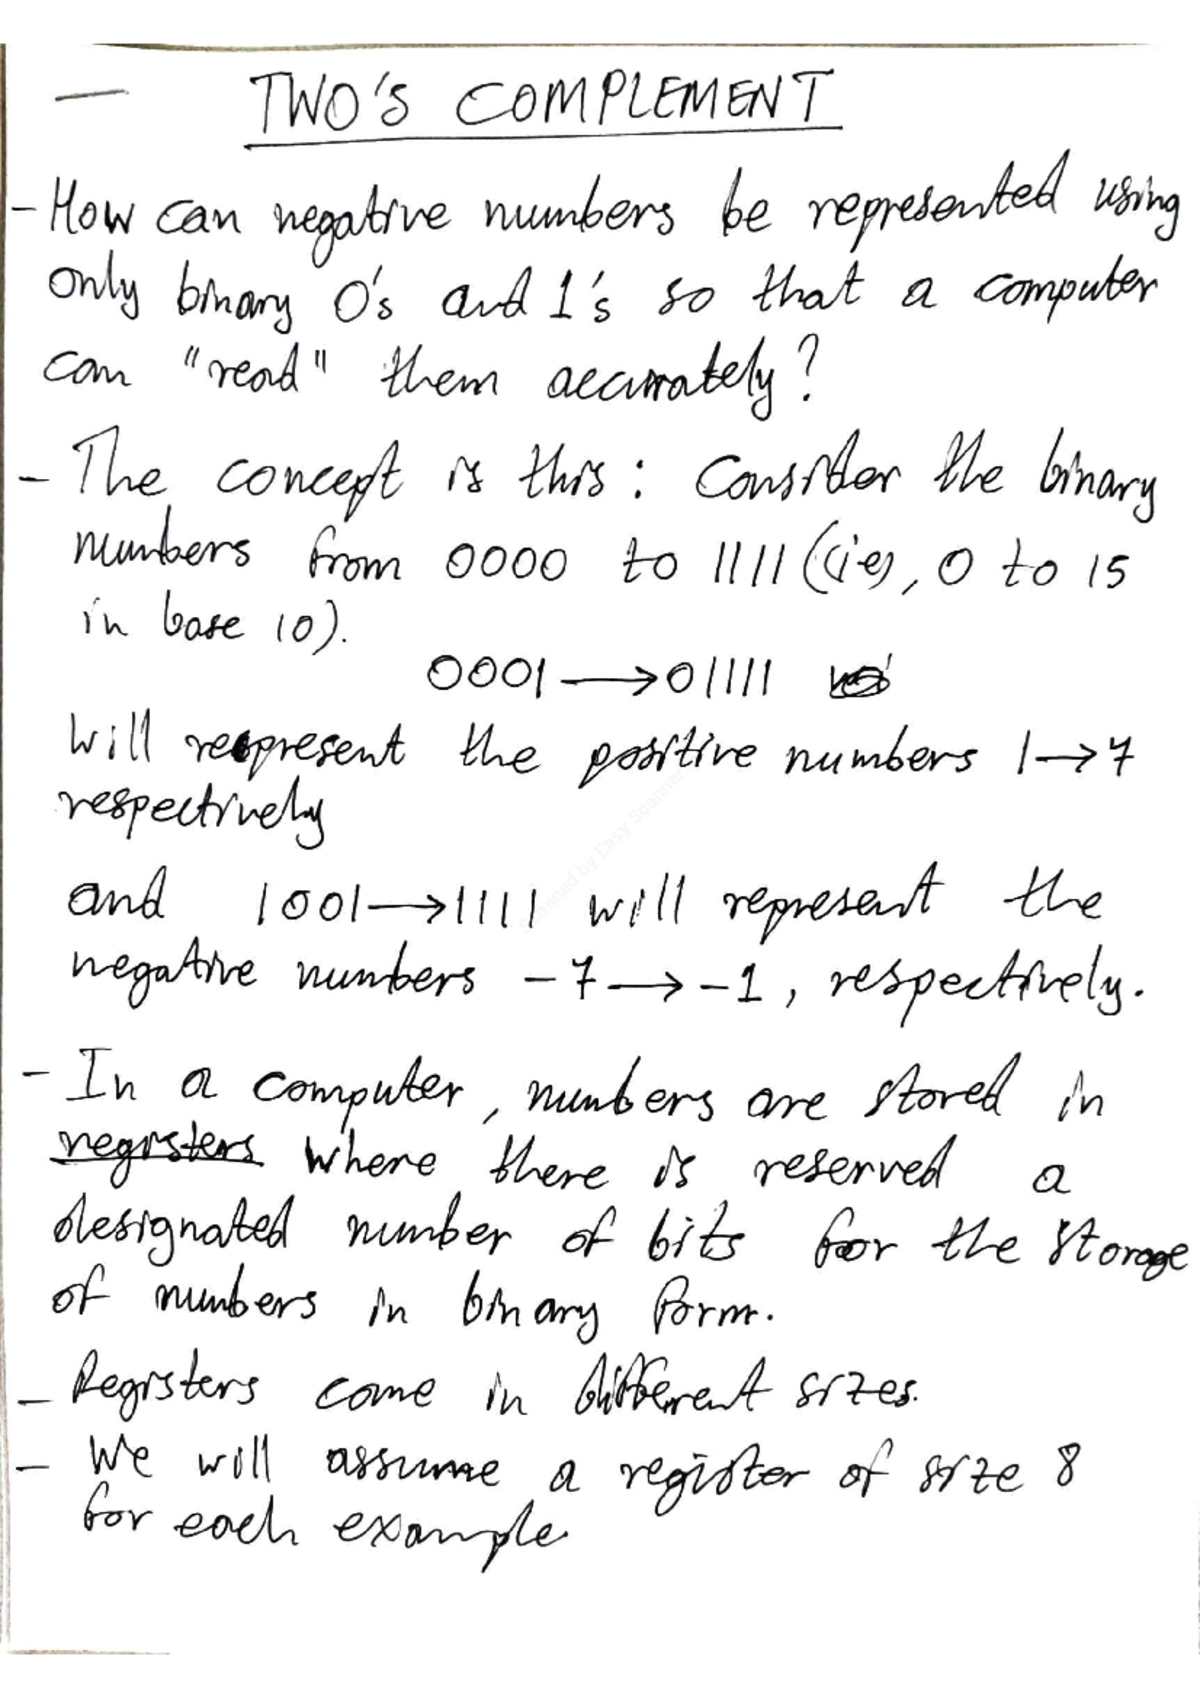 TWO'S COMPLEMENT
- How can negative numbers be represented using
only binary 0's and 1's so that a computer
can "read" them accurately?
- The concept is this: Consider the binary
numbers from 0000 to 1111 ((i.e), 0 to 15
in base 10).
0001 → 01111
will represent the positive numbers 1 → 7
respectively
and 1001 → 1111 will represent the
negative numbers -7 → -1, respectively.
- In a computer, numbers are stored in
registers where there is reserved a
designated number of bits for the storage
of numbers in binary form.
- Registers come in different sizes.
- We will assume a register of size 8
for each example.
Scanned by Easy Scanner